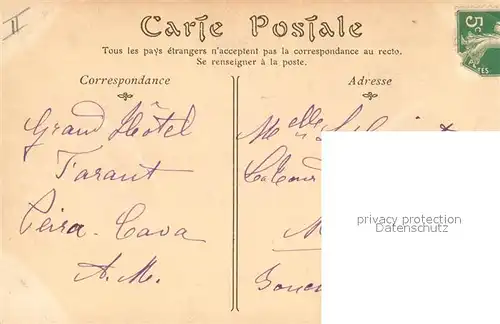 II
Carte Postale
5c
POSTES
Tous les pays étrangers n'acceptent pas la correspondance au recto.
Se renseigner à la poste.
Correspondance
Grand Hôtel
Tarant
Peira-Cava
A.M.
Adresse
Melle
privacy protection
Datenschutz